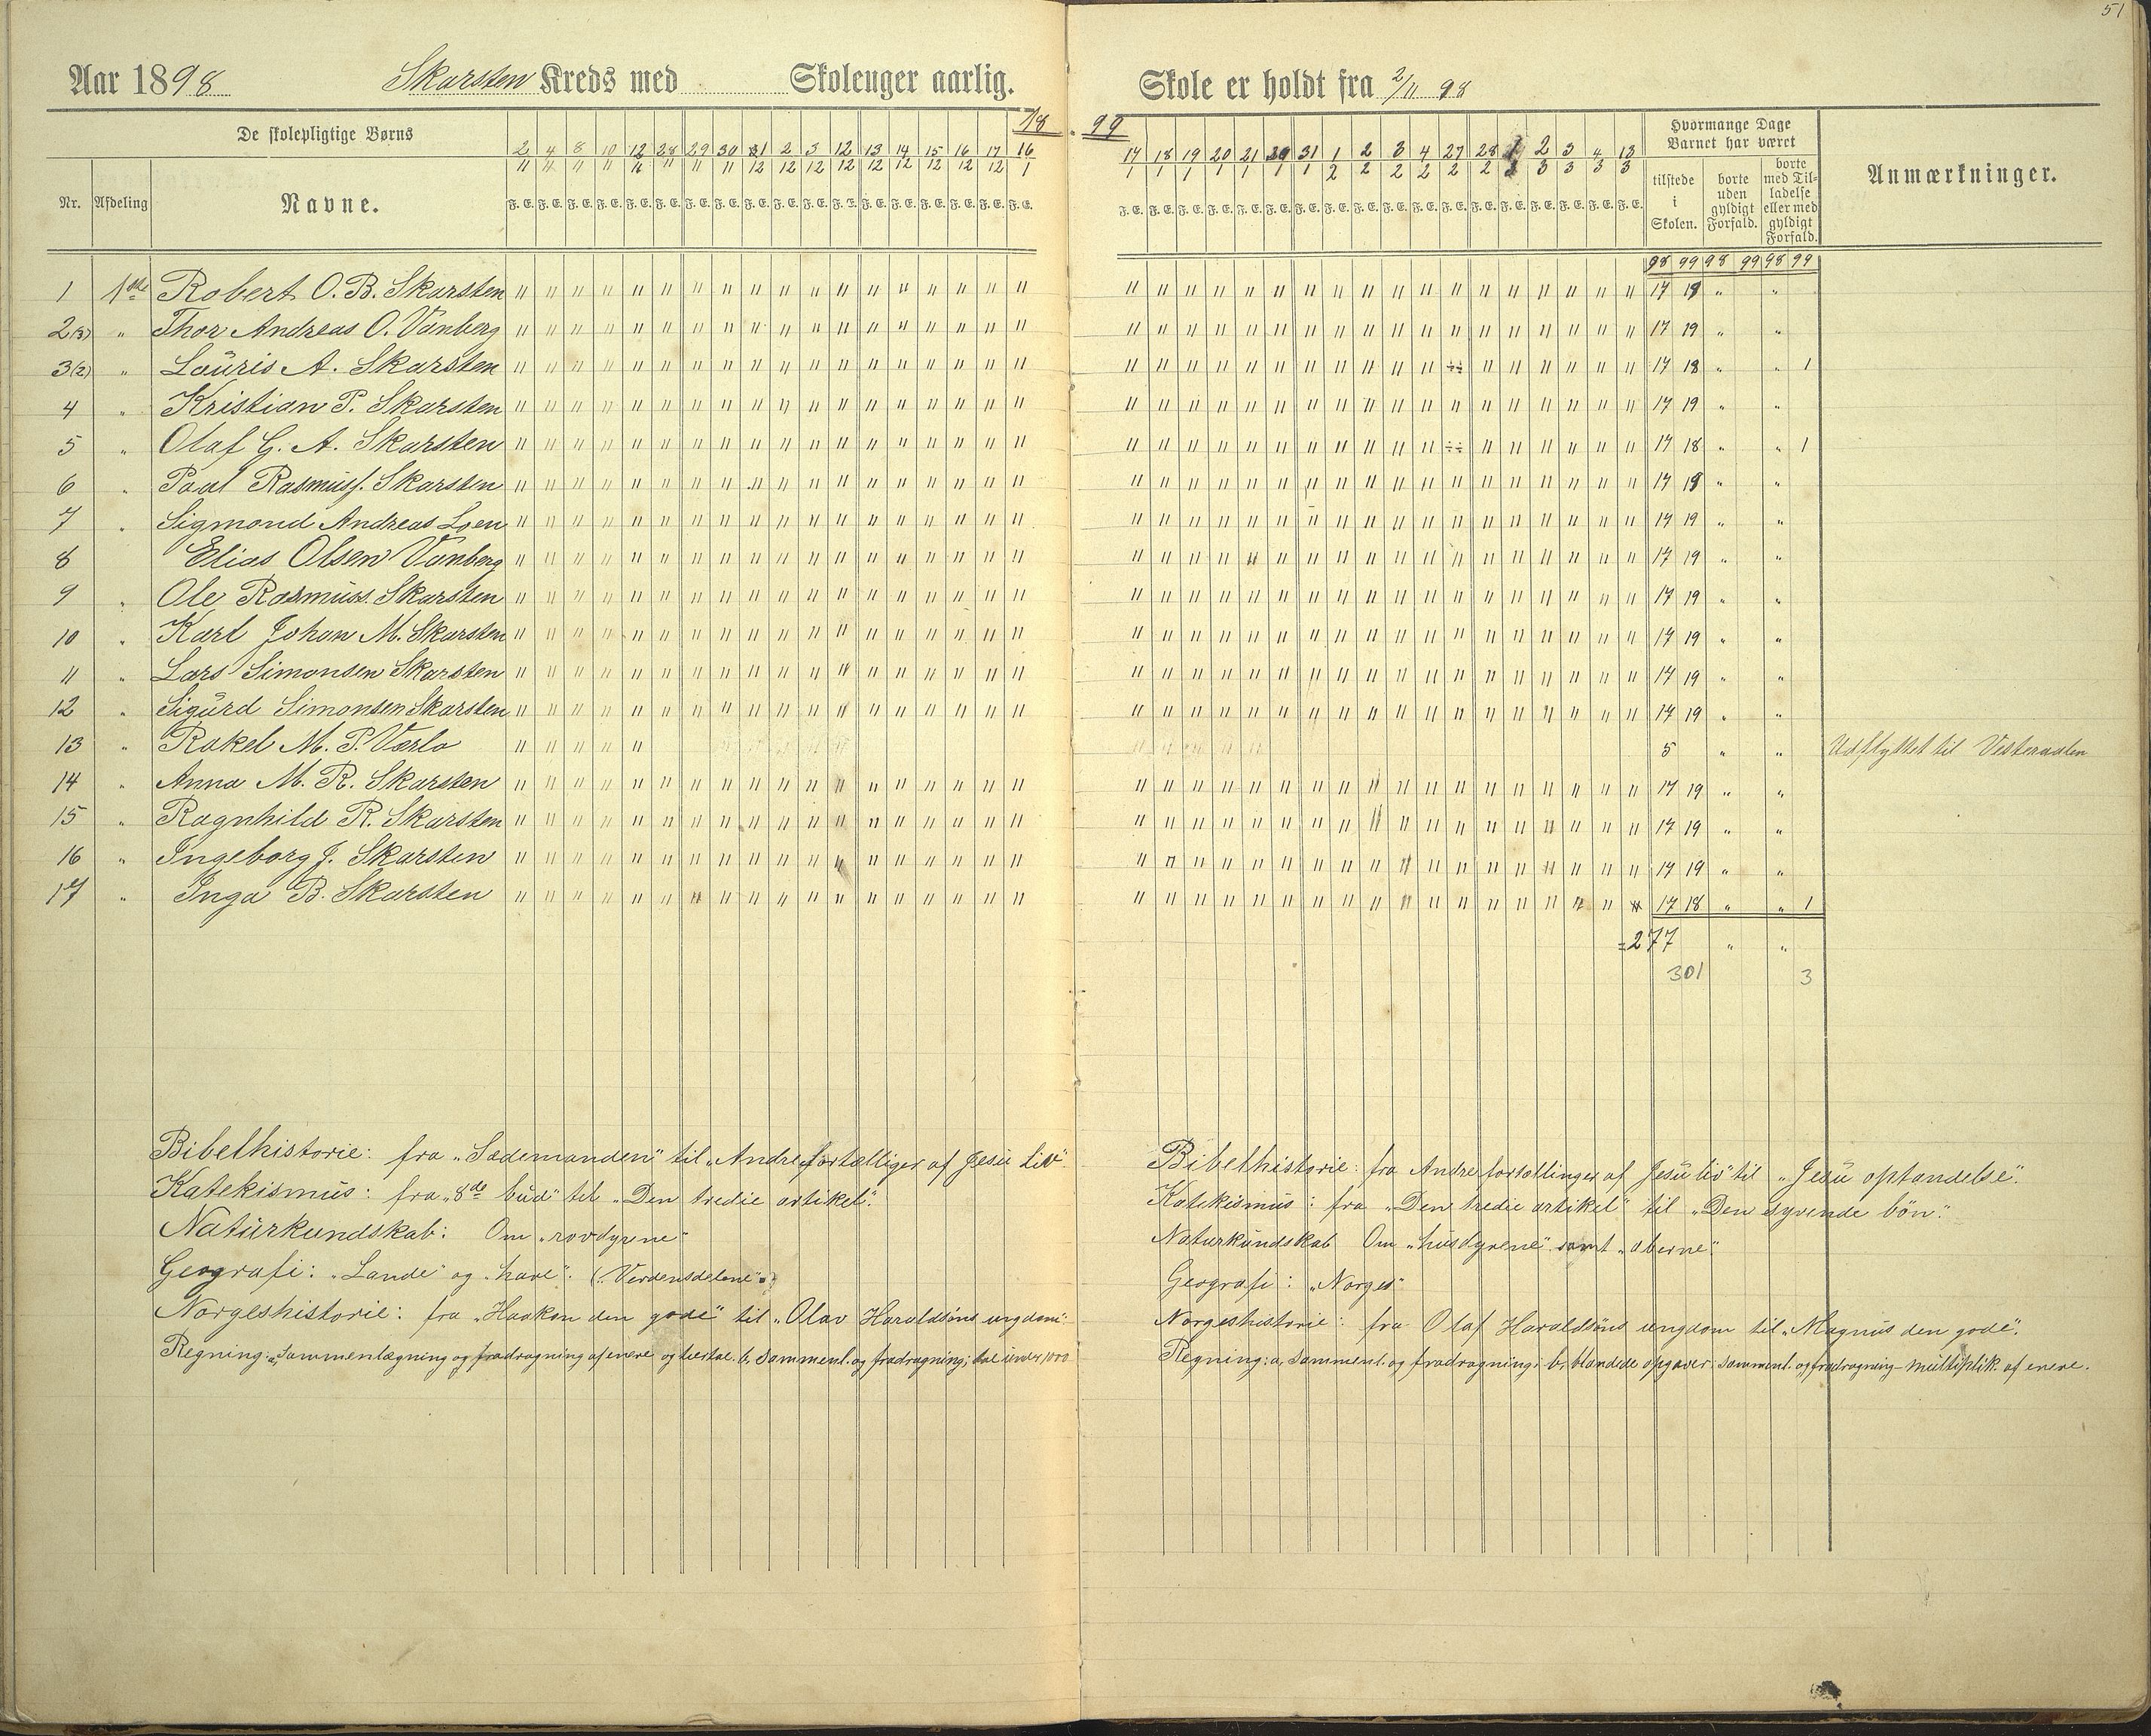 51
Aar 1898 Skarsten Kreds med Skoleuger aarlig. Skole er holdt fra 2/11 98
1/8 99
De skolepligtige Børns
Hvormange Dage Barnet har været
Nr. Afdeling Navne.
2/11 4/11 8/11 10/11 12/11 28/11 29/11 30/11 31/12 2/12 3/12 12/12 13/12 14/12 15/12 16/12 17/12 16/1
17/1 18/1 19/1 20/1 21/1 31/1 1/2 2/2 3/2 4/2 27/2 28/2 2/3 3/3 4/3 13/3
F. E. F. E. F. E. F. E. F. E. F. E. F. E. F. E. F. E. F. E. F. E. F. E. F. E. F. E. F. E. F. E. F. E. F. E.
F. E. F. E. F. E. F. E. F. E. F. E. F. E. F. E. F. E. F. E. F. E. F. E. F. E. F. E. F. E. F. E. F. E. F. E.
tilstede i Skolen.
borte uden gyldigt Forfald.
borte med Tilladelse eller med gyldigt Forfald.
Anmærkninger.
98 99 98 99 98 99
1 1ste Robert O. B. Skarsten 17 19 " "
2(3) " Thor Andreas O. Vanberg 17 19 " "
3(2) " Lauris A. Skarsten 17 18 " " 1
4 " Kristian P. Skarsten 17 19 " "
5 " Olaf G. A. Skarsten 17 18 " " 1
6 " Paul Rasmuss. Skarsten 17 19 " "
7 " Sigmond Andreas Loen 17 19 " "
8 Elias Olsen Vanberg 17 19 " "
9 " Ole Rasmuss. Skarsten 17 19 " "
10 " Karl Johan M. Skarsten 17 19 " "
11 " Lars Simonsen Skarsten 17 19 " "
12 " Sigurd Simonsen Skarsten 17 19 " "
13 " Rakel M. P. Værlo 5 " " Udflyttet til Vesteraalen
14 " Anna M. R. Skarsten 17 19 " "
15 " Ragnhild R. Skarsten 17 19 " "
16 " Ingeborg J. Skarsten 17 19 " "
17 " Inga B. Skarsten 17 18 " " 1
=277 " "
301 3
Bibelhistorie: fra „Sædemanden" til „Andre fortælliger af Jesu Liv".
Katekismus: fra „8de bud" til „Den tredie artikel".
Naturkundskab: Om „rovdyrene"
Geografi: „Lande" og „have". („Verdensdelene".)
Norgeshistorie: fra „Haakon den gode" til „Olav Haraldsöns ungdom".
Regning: a, Sammenlægning og fradragning af enere og tiertal. b, samment. og fradragning; tal under 1000
Bibelhistorie: fra Andre fortællinger af Jesu liv" til „Jesu opstandelse".
Katekismus: fra „Den tredie artikel" til „Den syvende bön".
Naturkundskab Om „husdyrene" samt „aberne".
Geografi: „Norges"
Norgeshistorie: fra Olaf Haraldsöns ungdom til „Magnus den gode".
Regning: a, samment. og fradragning; b, blandede opgaver samment. og fradragning – multiplik. af enere.